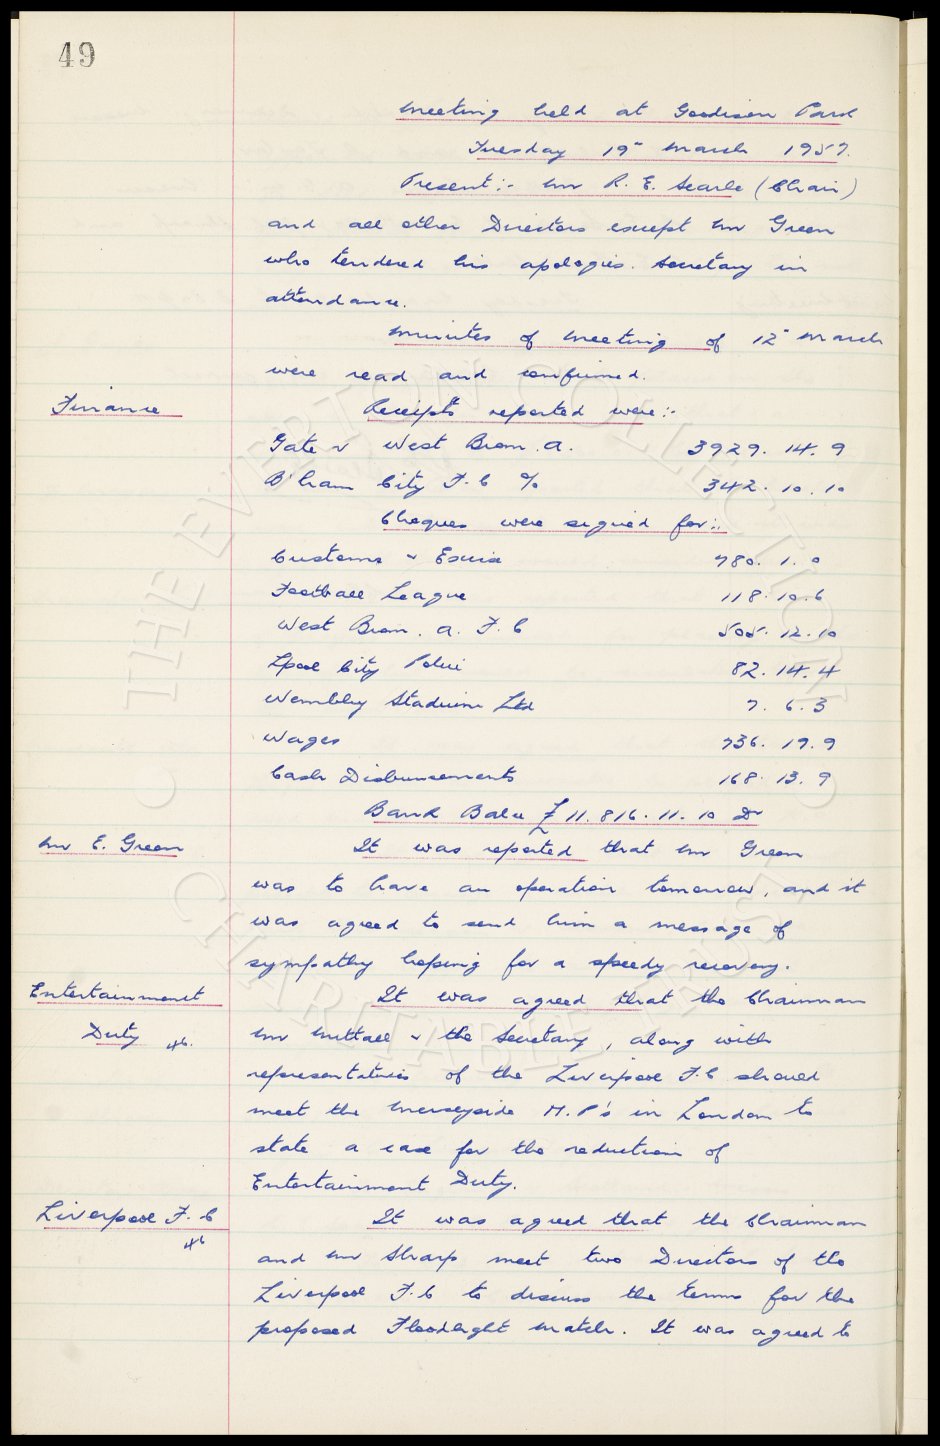 49
Meeting held at Goodison Park
Tuesday 19" March 1957.
Present:- Mr R. E. Searle (Chair)
and all other Directors except Mr Green
who tendered his apologies. Secretary in
attendance.
Minutes of Meeting of 12" March
were read and confirmed.
Finance
Receipts reported were:-
Gate v West Brom. A. 3929. 14. 9
B'ham City F.C % 342. 10. 10
Cheques were signed for:-
Customs & Excise 780. 1. 0
Football League 118. 10. 6
West Brom. A. F. C 505. 12. 10
Lpool City Police 82. 14. 4
Wembley Stadium Ltd 7. 6. 3
Wages 736. 19. 9
Cash Disbursements 168. 13. 9
Bank Balce £11.816. 11. 10 Dr
Mr E. Green
It was reported that Mr Green
was to have an operation tomorrow, and it
was agreed to send him a message of
sympathy hoping for a speedy recovery.
Entertainment
Duty 46.
It was agreed that the Chairman
Mr Nuttall & the Secretary, along with
representatives of the Liverpool F.C should
meet the Merseyside M.P's in London to
state a case for the reduction of
Entertainment Duty.
Liverpool F.C
46
It was agreed that the Chairman
and Mr Sharp meet two Directors of the
Liverpool F.C to discuss the terms for the
proposed Floodlight match. It was agreed to
THE EVERTON COLLECTION
CHARITABLE TRUST